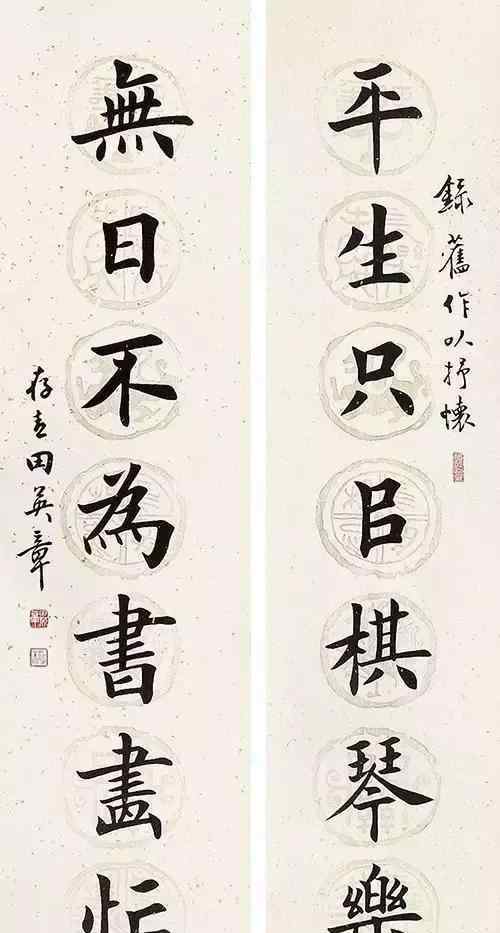 錄舊作以抒懷
平生只㠯棋琴樂
無日不為書畫忻
存青田英章